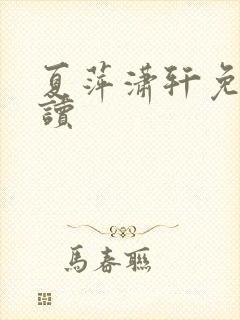 夏萍潇轩免
讀
馬春聯